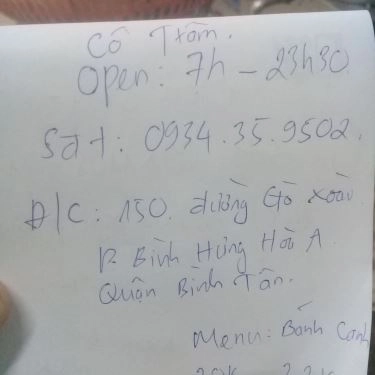 Cô Trâm.
Open: 7h - 23h30
Sđt: 0934.35.9502.
Đ/C: 150. đường Gò Xoài
P. Bình Hưng Hòa A
Quận Bình Tân.
Menu: Bánh Canh